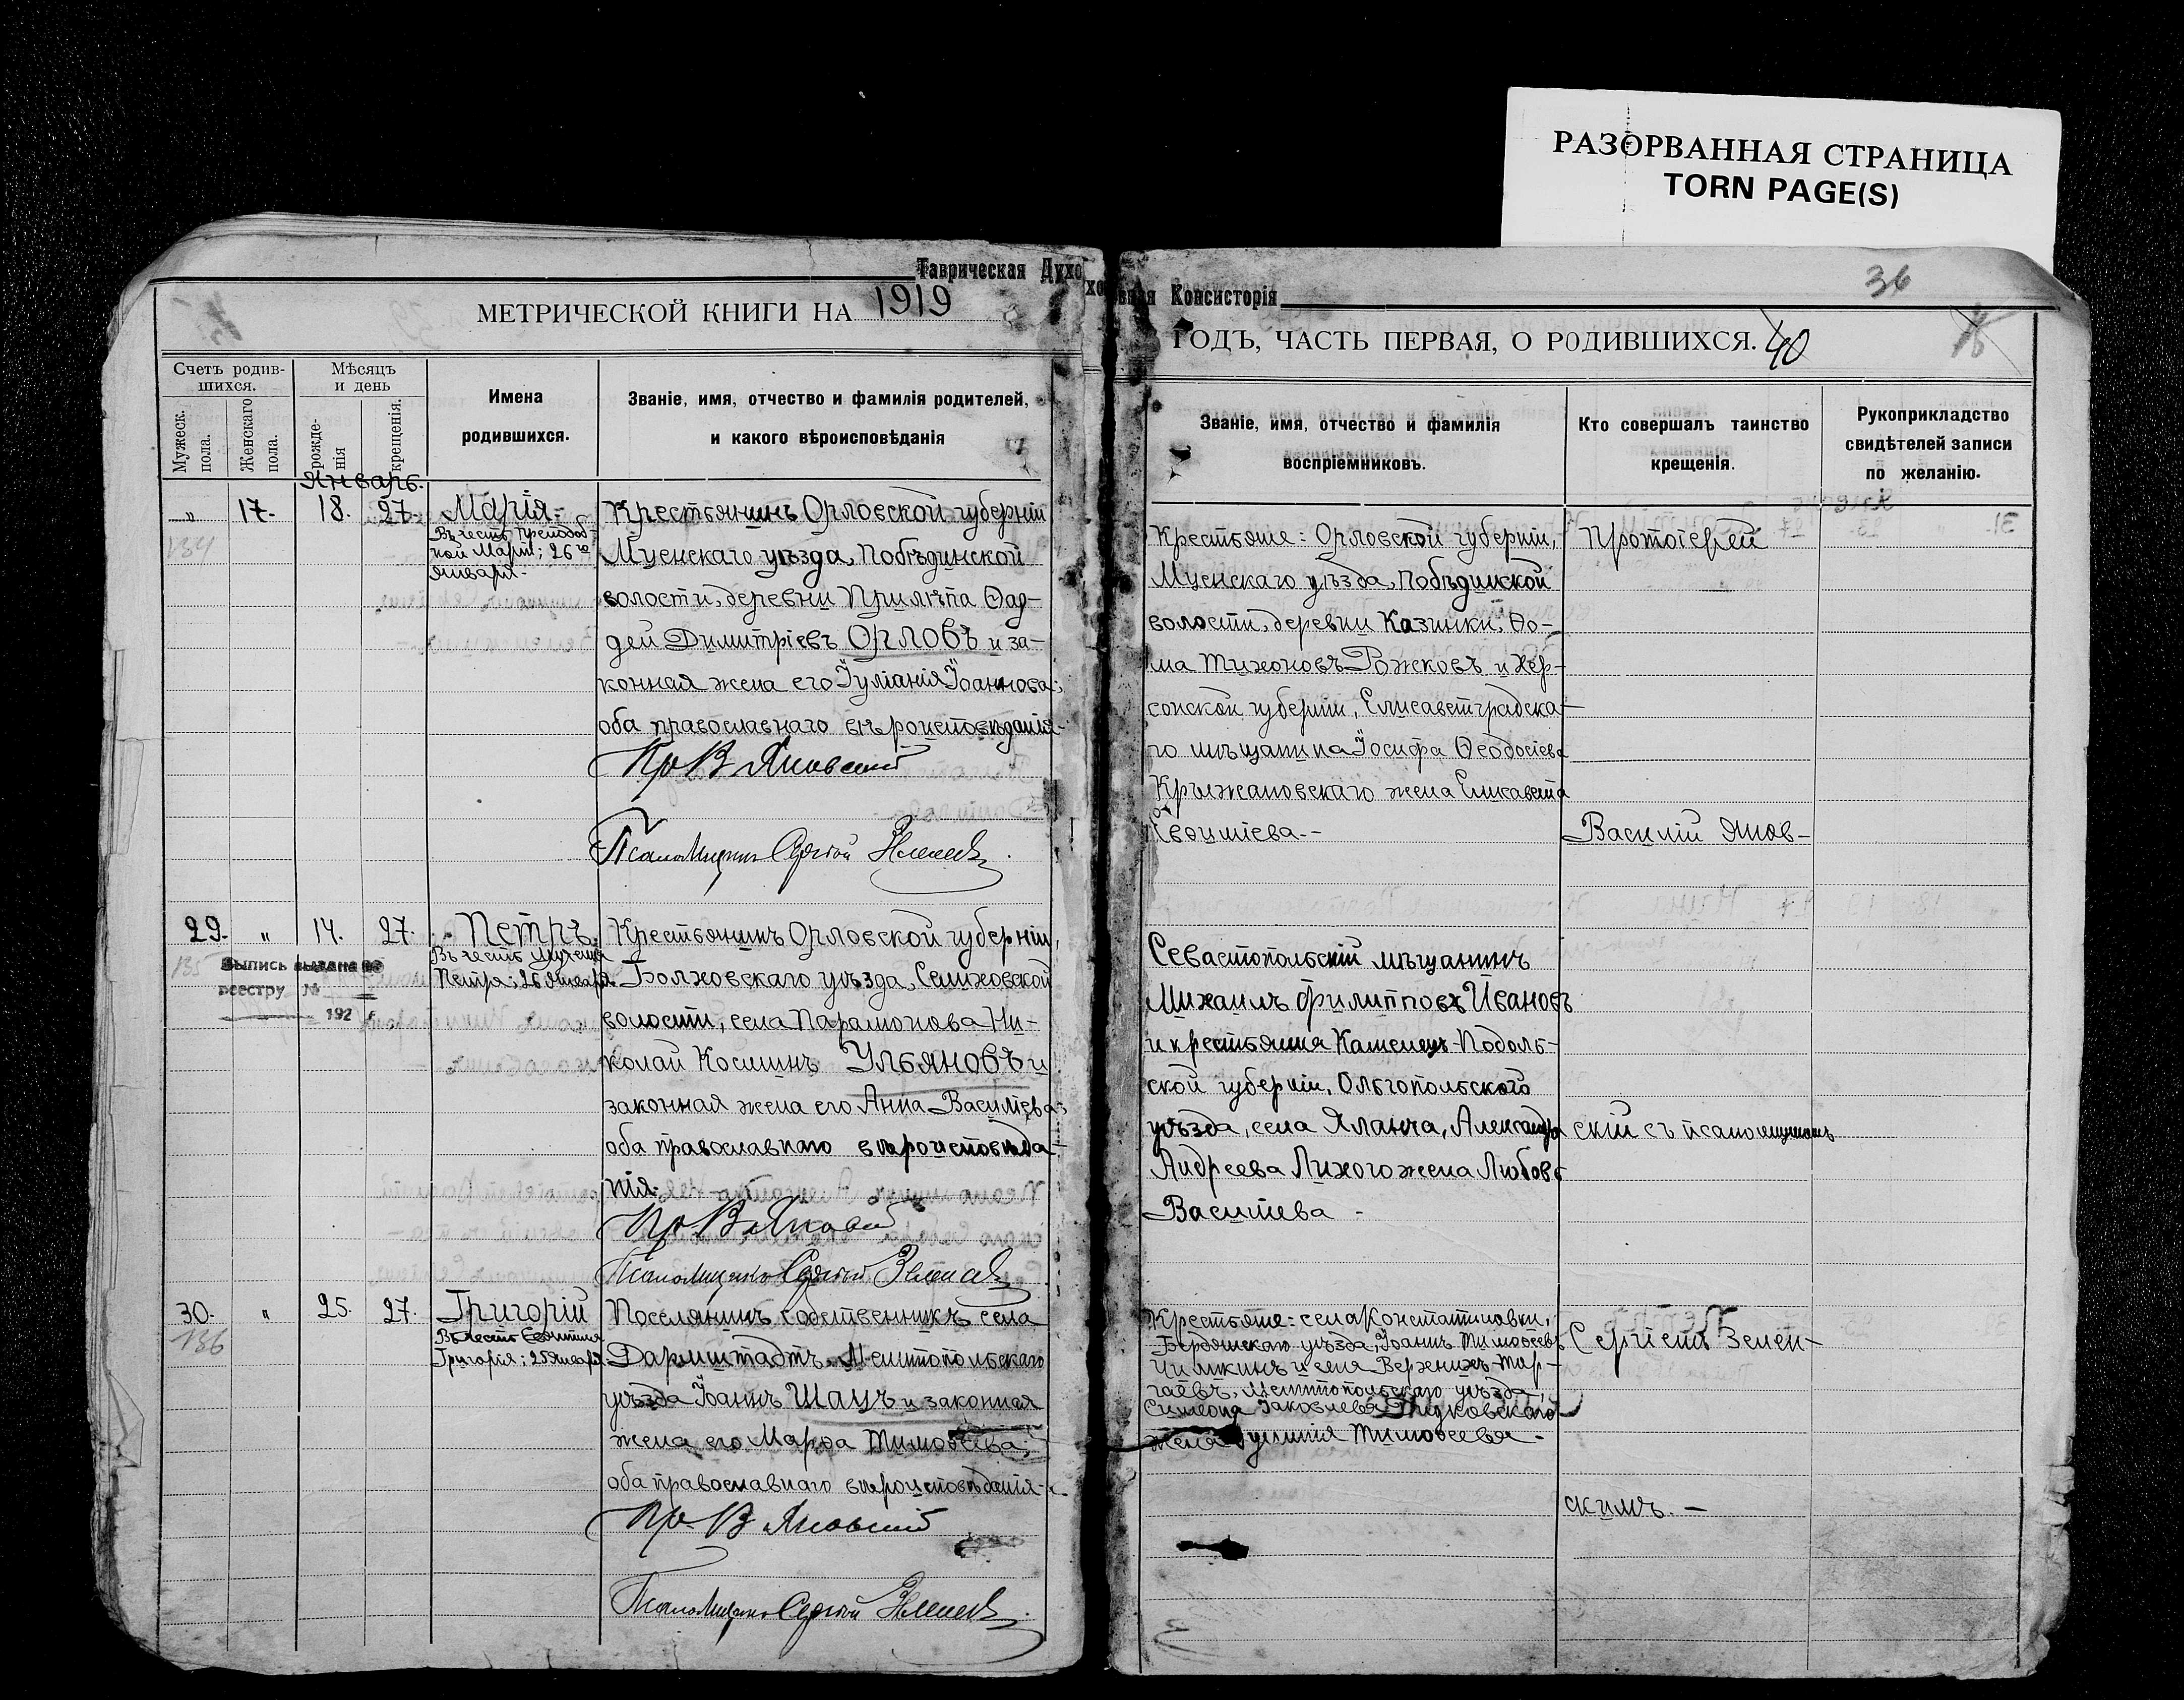 РАЗОРВАННАЯ СТРАНИЦА
TORN PAGE(S)
Таврическая Духо
вная Консисторія
36
МЕТРИЧЕСКОЙ КНИГИ НА 1919
ГОДЪ, ЧАСТЬ ПЕРВАЯ, О РОДИВШИХСЯ. 40
Счетъ родив-
шихся.
Мужеск.
пола.
Женскаго
пола.
Мѣсяцъ
и день
рожде-
нія
крещенія.
Имена
родившихся.
Званіе, имя, отчество и фамилія родителей,
и какого вѣроисповѣданія
Званіе, имя, отчество и фамилія
воспріемниковъ.
Кто совершалъ таинство
крещенія.
Рукоприкладство
свидѣтелей записи
по желанію.
Январь.
„ 17. 18. 27.
134
Марія.
Въ честь преподоб-
ной Маріи; 26го
января.
Крестьянинъ Орловской губерніи
Мценскаго уѣзда, Побѣдинской
волости, деревни Прилѣпа Ѳад-
дей Димитріевъ ОРЛОВЪ и за-
конная жена его Іуліанія Іоаннова;
оба православнаго вѣроисповѣданія.
Пр В Яновский
Псаломщикъ Сергій Зеленск
Крестьяне: Орловской губерніи,
Мценскаго уѣзда, Побѣдинской
волости, деревни Казинки, Ѳо-
ма Тихоновъ Рожковъ и Хер-
сонской губерніи, Елисаветградска-
го мѣщанина Іосифа Ѳеодосіева
Крыжановскаго жена Елисавета
Протоіерей
Василій Янов-
29. „ 14. 27.
135
Выпись выдана по
реестру №
192 г.
Петръ.
Въ честь
Петра; 26 Января.
Крестьянинъ Орловской губерніи,
Болховскаго уѣзда, Селиховской
волости, села Парамонова Ни-
колай Косминъ УЛЬЯНОВЪ и
законная жена его Анна Василіева;
оба православнаго вѣроисповѣда-
нія.
Пр В Яновский
Псаломщикъ Сергій Зеленск
Севастопольскій мѣщанинъ
Михаилъ Филипповъ Ивановъ
и крестьянина Каменецъ-Подоль-
ской губерніи, Ольгопольского
уѣзда, села Яланча, Александра
Андреева Лихого жена Любовь
Василіева -
скій съ псаломщикомъ
30. „ 25. 27.
136
Григорій
Въ честь Святителя
Григорія; 25 Января.
Поселянинъ собственникъ села
Дармштадтъ, Мелитопольскаго
уѣзда Іоаннъ ШАЦЪ и законная
жена его Марѳа Тимоѳеева;
оба православнаго вѣроисповѣданія.
Пр. В Яновский
Псаломщикъ Сергій Зеленск
Крестьяне: села Константиновки,
Бердянскаго уѣзда, Іоаннъ Тимоѳеевъ
и села Верхнихъ-Тор-
гаевъ, Мелитопольскаго уѣзда,
Симеона Іаковлева
жена Тимоѳеева -
Сергіемъ Зелен-
скимъ. -